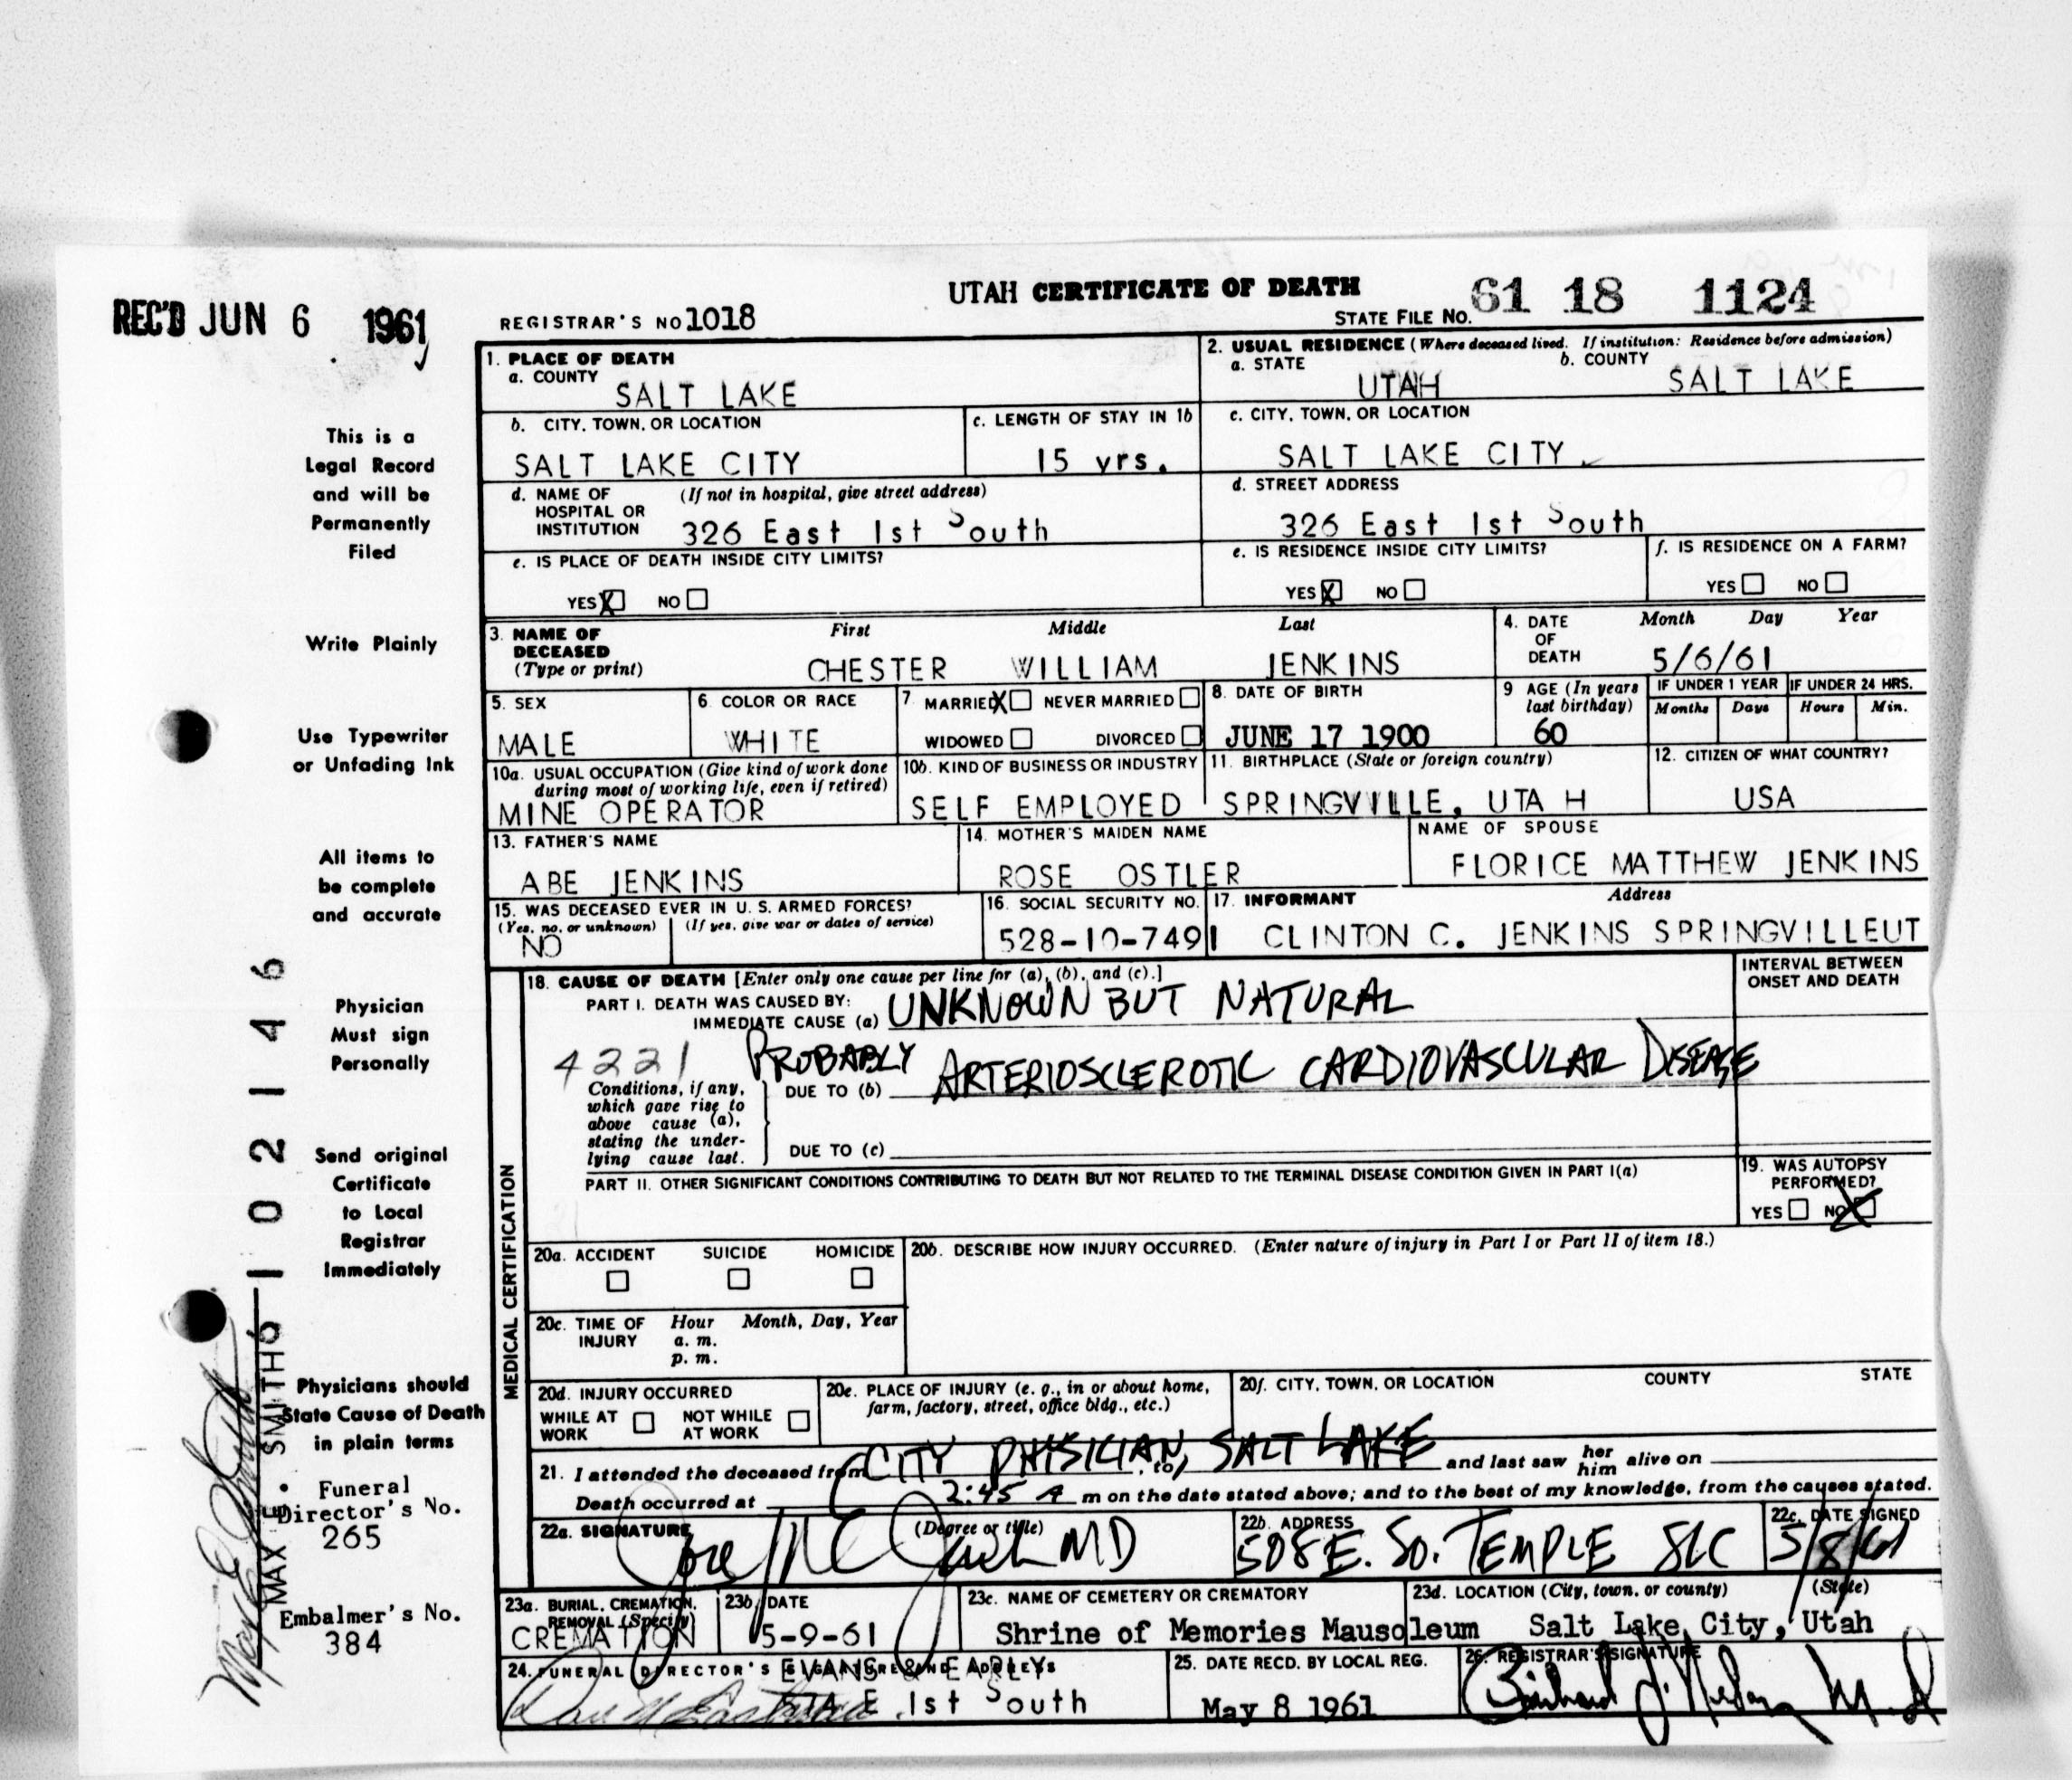 REC'D JUN 6 1961
UTAH CERTIFICATE OF DEATH
REGISTRAR'S NO 1018
STATE FILE NO. 61 18 1124
This is a
Legal Record
and will be
Permanently
Filed
Write Plainly
Use Typewriter
or Unfading Ink
All items to
be complete
and accurate
Physician
Must sign
Personally
Send original
Certificate
to Local
Registrar
Immediately
Physicians should
State Cause of Death
in plain terms
Funeral
Director's No.
265
Embalmer's No.
384
1102146
MAX E. SMITH
1. PLACE OF DEATH
a. COUNTY
SALT LAKE
2. USUAL RESIDENCE (Where deceased lived. If institution: Residence before admission)
a. STATE b. COUNTY
UTAH SALT LAKE
b. CITY, TOWN, OR LOCATION
SALT LAKE CITY
c. LENGTH OF STAY IN 1b
15 yrs.
c. CITY, TOWN, OR LOCATION
SALT LAKE CITY
d. NAME OF HOSPITAL OR INSTITUTION (If not in hospital, give street address)
326 East 1st South
d. STREET ADDRESS
326 East 1st South
e. IS PLACE OF DEATH INSIDE CITY LIMITS?
YES X NO
e. IS RESIDENCE INSIDE CITY LIMITS?
YES X NO
f. IS RESIDENCE ON A FARM?
YES NO
3. NAME OF DECEASED (Type or print)
First Middle Last
CHESTER WILLIAM JENKINS
4. DATE OF DEATH Month Day Year
5/6/61
5. SEX
MALE
6. COLOR OR RACE
WHITE
7. MARRIED X NEVER MARRIED
WIDOWED DIVORCED
8. DATE OF BIRTH
JUNE 17 1900
9 AGE (In years last birthday)
60
IF UNDER 1 YEAR IF UNDER 24 HRS.
Months Days Hours Min.
10a. USUAL OCCUPATION (Give kind of work done during most of working life, even if retired)
MINE OPERATOR
10b. KIND OF BUSINESS OR INDUSTRY
SELF EMPLOYED
11. BIRTHPLACE (State or foreign country)
SPRINGVILLE, UTAH
12. CITIZEN OF WHAT COUNTRY?
USA
13. FATHER'S NAME
ABE JENKINS
14. MOTHER'S MAIDEN NAME
ROSE OSTLER
NAME OF SPOUSE
FLORICE MATTHEW JENKINS
15. WAS DECEASED EVER IN U. S. ARMED FORCES?
(Yes, no, or unknown) (If yes, give war or dates of service)
NO
16. SOCIAL SECURITY NO.
528-10-7491
17. INFORMANT Address
CLINTON C. JENKINS SPRINGVILLEUT
MEDICAL CERTIFICATION
18. CAUSE OF DEATH [Enter only one cause per line for (a), (b), and (c).]
INTERVAL BETWEEN ONSET AND DEATH
PART I. DEATH WAS CAUSED BY:
IMMEDIATE CAUSE (a) UNKNOWN BUT NATURAL
4221 PROBABLY
Conditions, if any, which gave rise to above cause (a), stating the underlying cause last.
DUE TO (b) ARTERIOSCLEROTIC CARDIOVASCULAR DISEASE
DUE TO (c)
PART II. OTHER SIGNIFICANT CONDITIONS CONTRIBUTING TO DEATH BUT NOT RELATED TO THE TERMINAL DISEASE CONDITION GIVEN IN PART I(a)
19. WAS AUTOPSY PERFORMED?
YES NO X
20a. ACCIDENT SUICIDE HOMICIDE
20b. DESCRIBE HOW INJURY OCCURRED. (Enter nature of injury in Part I or Part II of item 18.)
20c. TIME OF INJURY Hour Month, Day, Year
a. m.
p. m.
20d. INJURY OCCURRED
WHILE AT WORK NOT WHILE AT WORK
20e. PLACE OF INJURY (e. g., in or about home, farm, factory, street, office bldg., etc.)
20f. CITY, TOWN, OR LOCATION COUNTY STATE
21. I attended the deceased from CITY PHYSICIAN, to, SALT LAKE and last saw her him alive on
Death occurred at 2:45 A m on the date stated above; and to the best of my knowledge, from the causes stated.
22a. SIGNATURE (Degree or title)
MD
22b. ADDRESS
508 E. SO. TEMPLE SLC
22c. DATE SIGNED
5/8/61
23a. BURIAL, CREMATION, REMOVAL (Specify)
CREMATION
23b. DATE
5-9-61
23c. NAME OF CEMETERY OR CREMATORY
Shrine of Memories Mausoleum
23d. LOCATION (City, town, or county) (State)
Salt Lake City, Utah
24. FUNERAL DIRECTOR'S SIGNATURE AND ADDRESS
EVANS & EARLY
574 E. 1st South
25. DATE RECD. BY LOCAL REG.
May 8 1961
26. REGISTRAR'S SIGNATURE